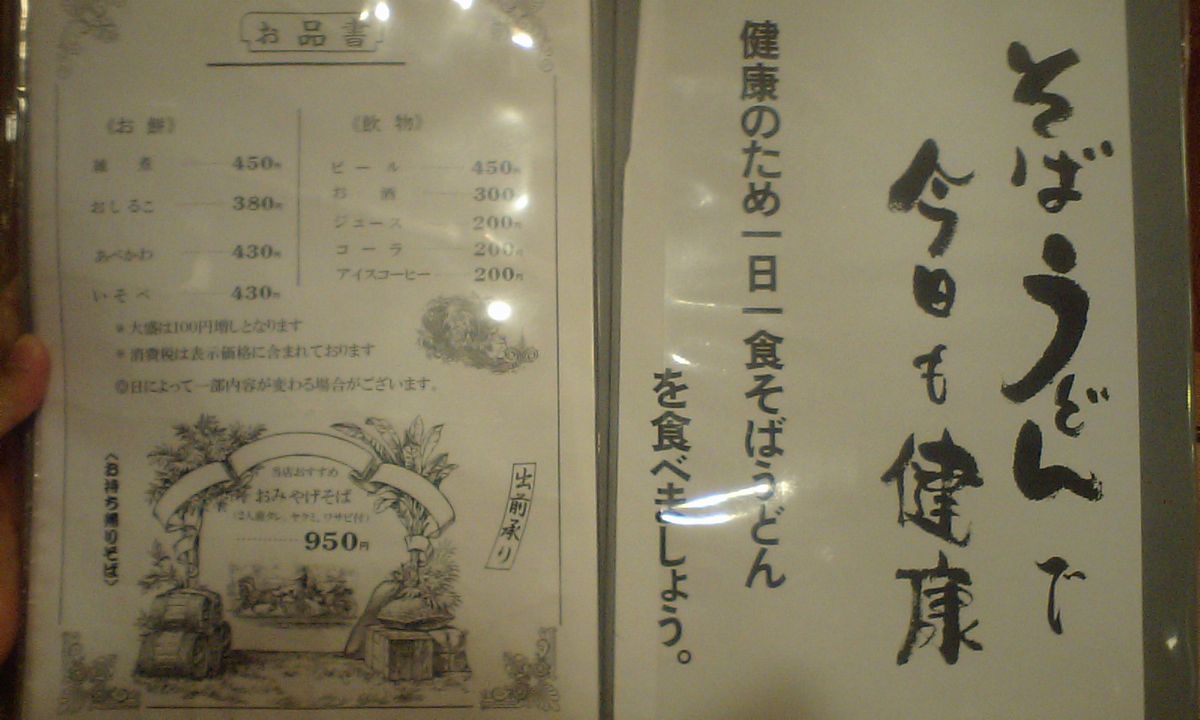 お品書
《お餅》
雑煮 450円
おしるこ 380円
あべかわ 430円
いそべ 430円
《飲物》
ビール 450円
お酒 300
ジュース 200円
コーラ 200円
アイスコーヒー 200円
*大盛は100円増しとなります
*消費税は表示価格に含まれております
◎日によって一部内容が変わる場合がございます。
〈お持ち帰りそば〉
当店おすすめ
おみやげそば
(2人前タレ、ヤクミ、ワサビ付)
950円
出前承り
そばうどんで
今日も健康
健康のため一日一食そばうどん
を食べましょう。